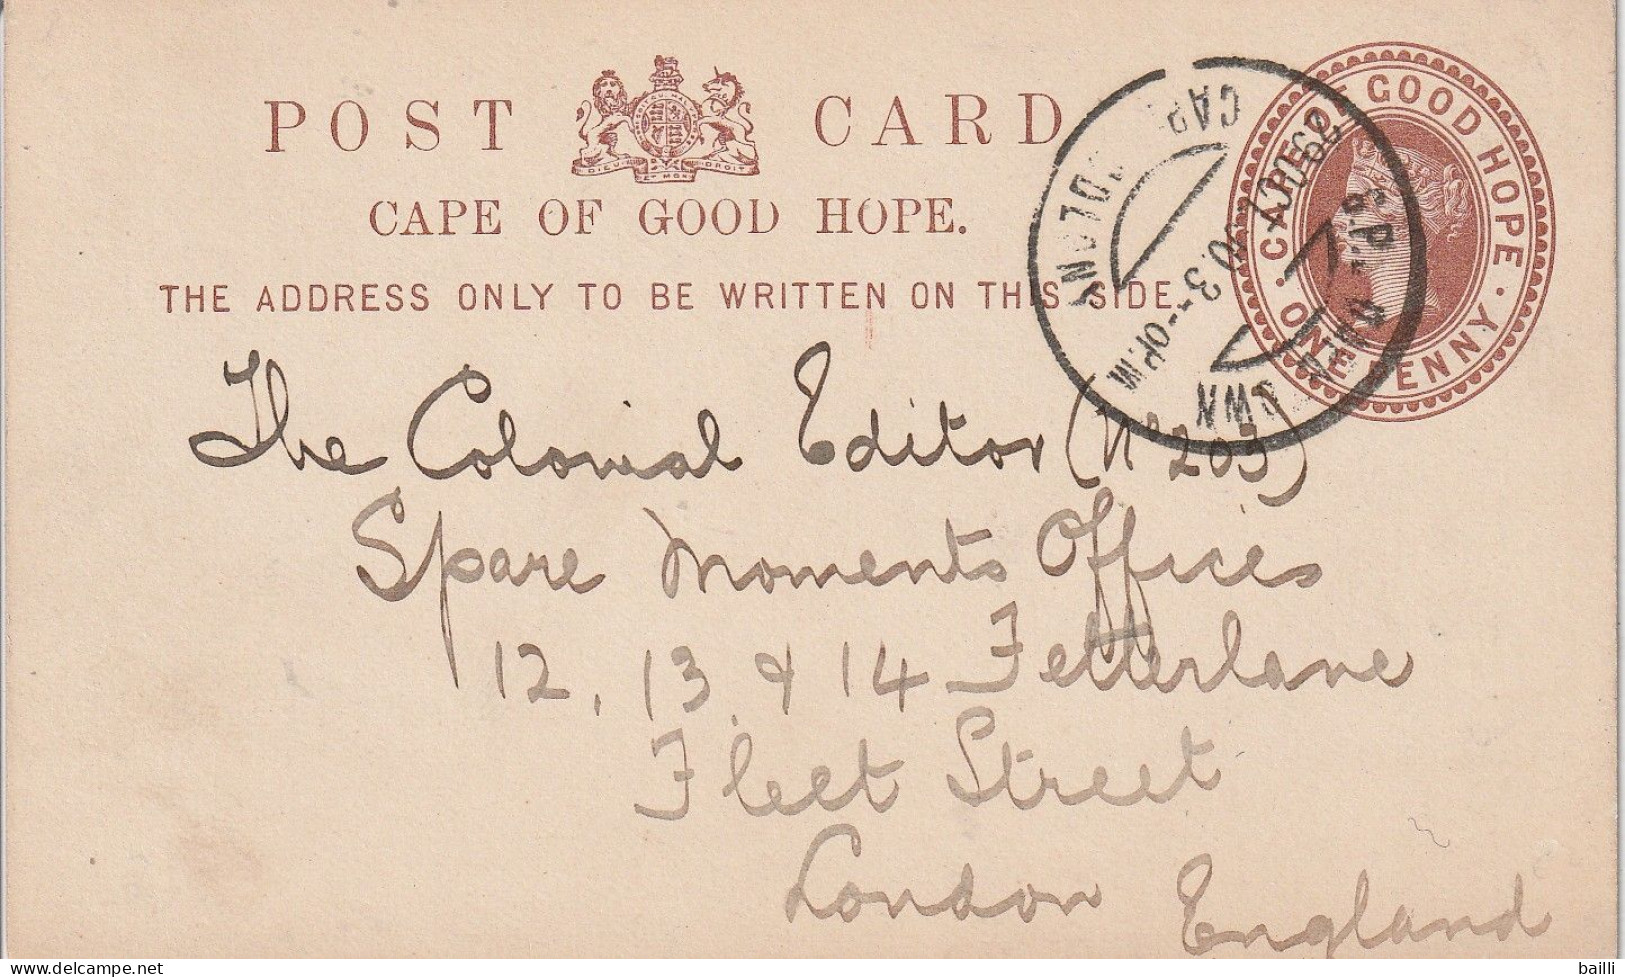 POST CARD
DIEU ET MON DROIT
CAPE OF GOOD HOPE.
THE ADDRESS ONLY TO BE WRITTEN ON THIS SIDE.
CAPE OF GOOD HOPE.
ONE PENNY.
29 OCT 00. 3-
The Colonial Editor (No 203)
Spare Moments Offices
12, 13 & 14 Fetterlane
Fleet Street
London England
bailli